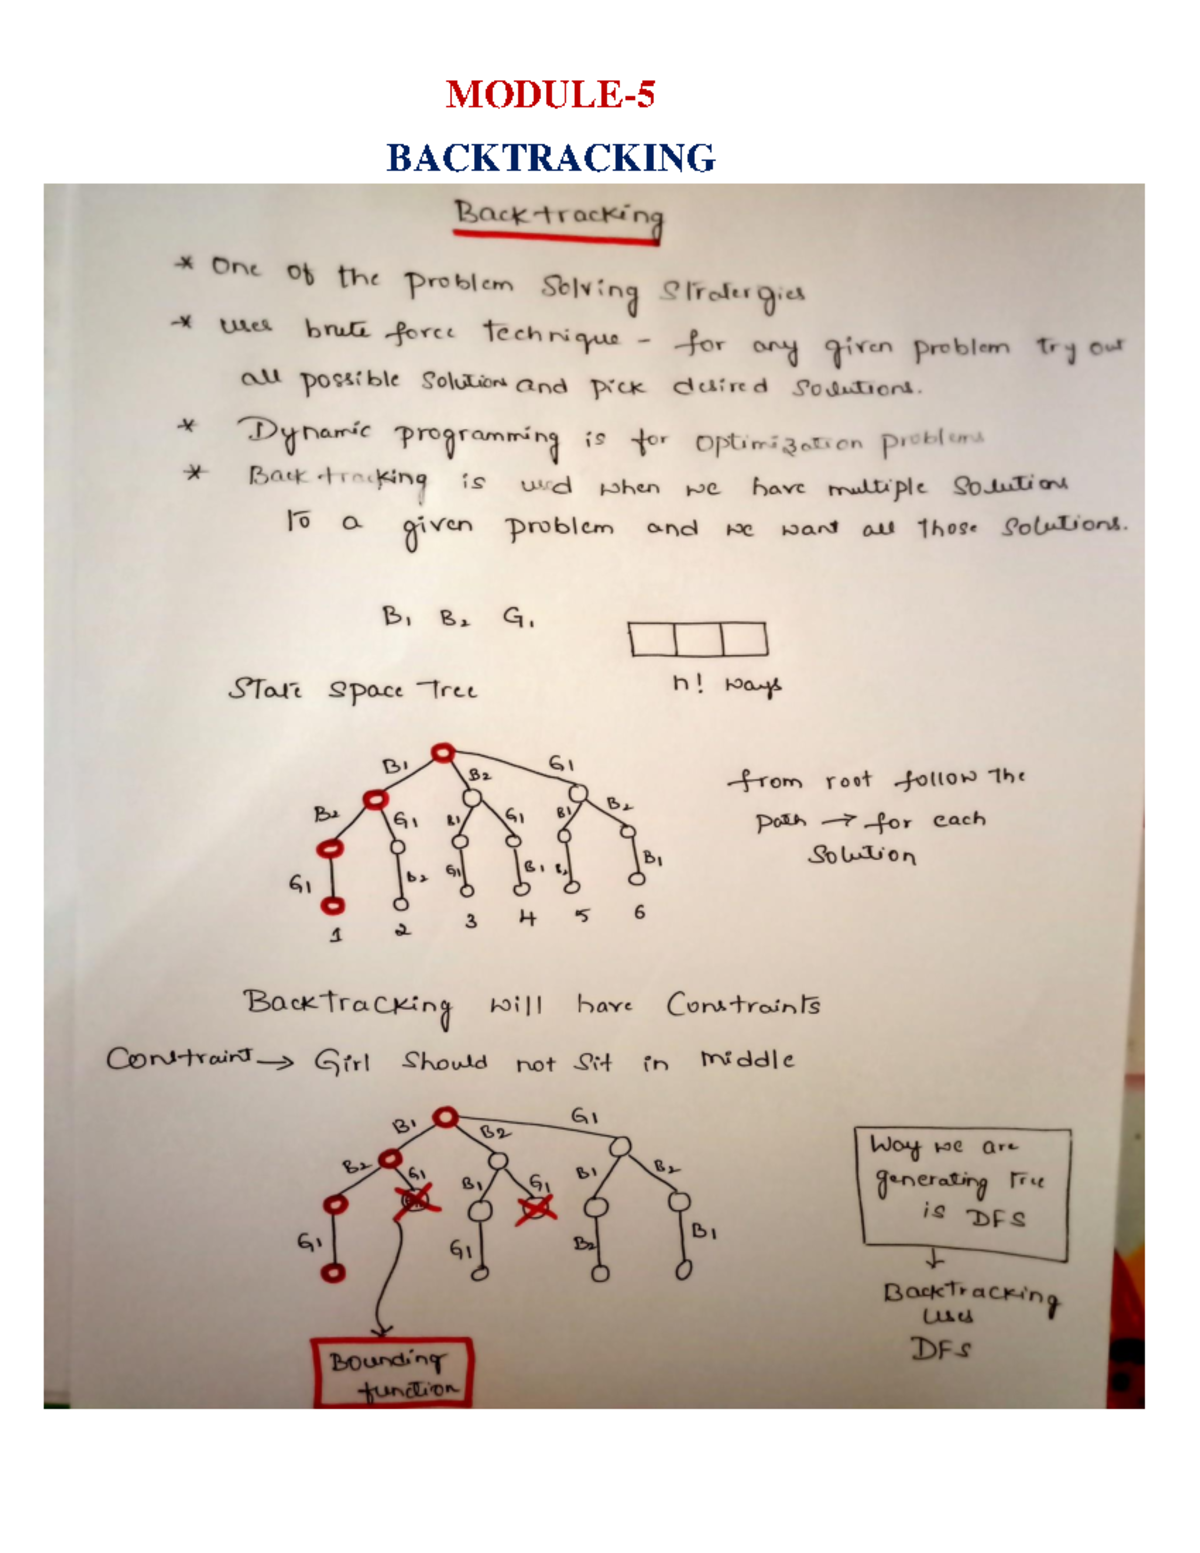 MODULE-5
BACKTRACKING
Backtracking
* One of the problem Solving Stratergies
* uses brute force technique - for any given problem try out
all possible Solutions and pick desired Solutions.
* Dynamic programming is for optimization problems
* Backtracking is used when we have multiple Solutions
To a given problem and we want all those solutions.
B1 B2 G1
State space Tree
n! ways
B1 B2 G1
B2 G1 B1 G1 B1 B2
G1 B2 G1 B1 B2 B1
1 2 3 4 5 6
from root follow the
path → for each
Solution
Backtracking will have Constraints
Constraint → Girl Should not Sit in middle
B1 B2 G1
B2 G1 B1 G1 B1 B2
G1 G1 B2 B1
Way we are
generating Tree
is DFS
Backtracking
uses
DFS
Bounding
function